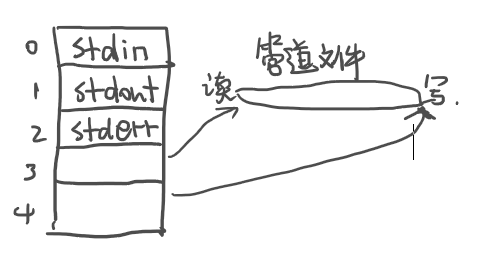 0 stdin
1 stdout
2 stderr
3
4
管道文件
读
写.